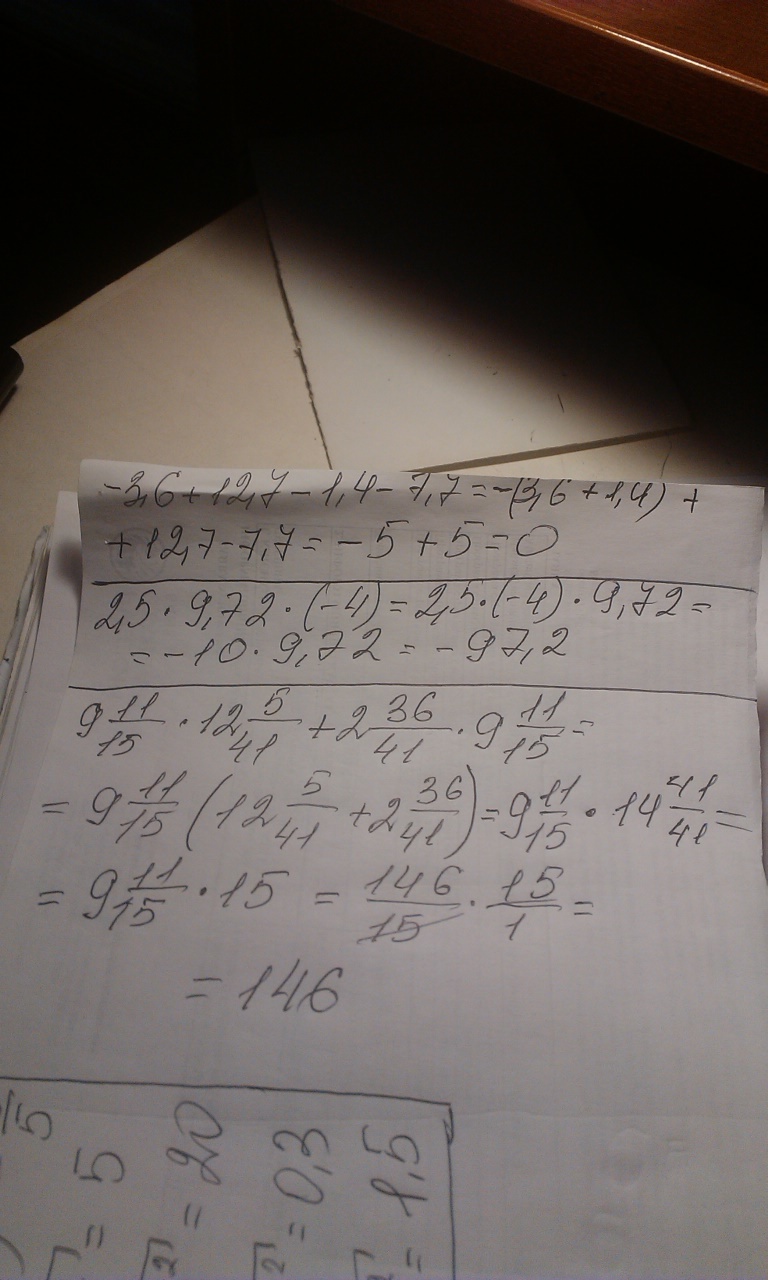 -3,6+12,7-1,4-7,7=-(3,6+1,4)+
+12,7-7,7=-5+5=0
2,5·9,72·(-4)=2,5·(-4)·9,72=
=-10·9,72=-97,2
9 11/15 · 12 5/41 + 2 36/41 · 9 11/15 =
= 9 11/15 (12 5/41 + 2 36/41) = 9 11/15 · 14 41/41 =
= 9 11/15 · 15 = 146/15 · 15/1 =
= 146
5
= 5
= 20
= 0,3
= 1,5